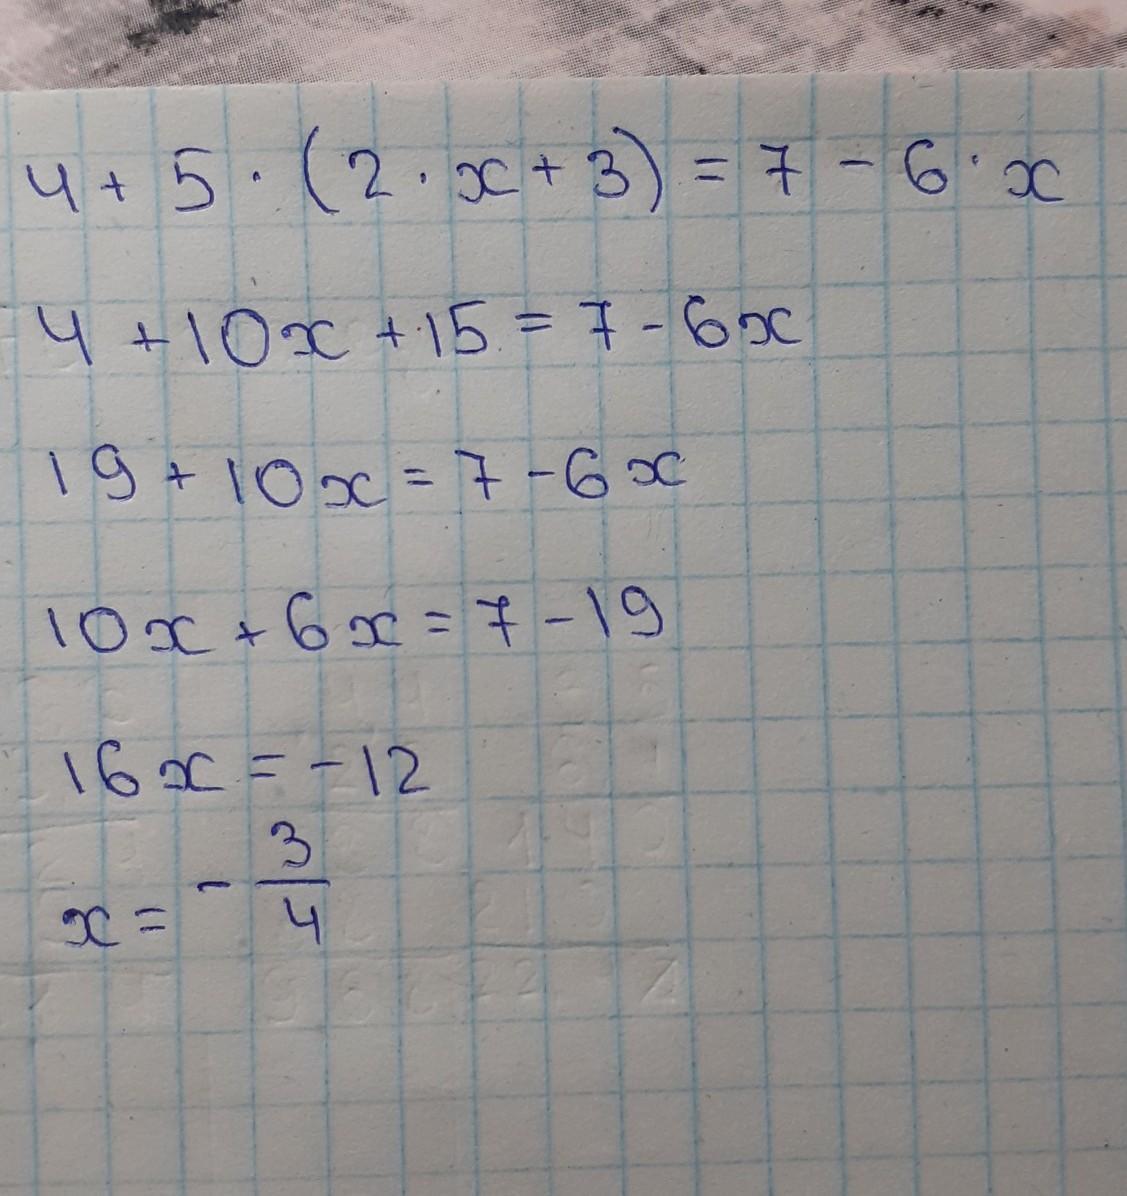 4 + 5 · (2 · x + 3) = 7 - 6 · x
4 + 10x + 15 = 7 - 6x
19 + 10x = 7 - 6x
10x + 6x = 7 - 19
16x = -12
x = - 3/4